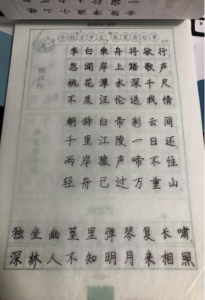 李白乘舟将欲行
忽闻岸上踏歌声
桃花潭水深千尺
不及汪伦送我情
朝辞白帝彩云间
千里江陵一日还
两岸猿声啼不住
轻舟已过万重山
独坐幽篁里弹琴复长啸
深林人不知明月来相照